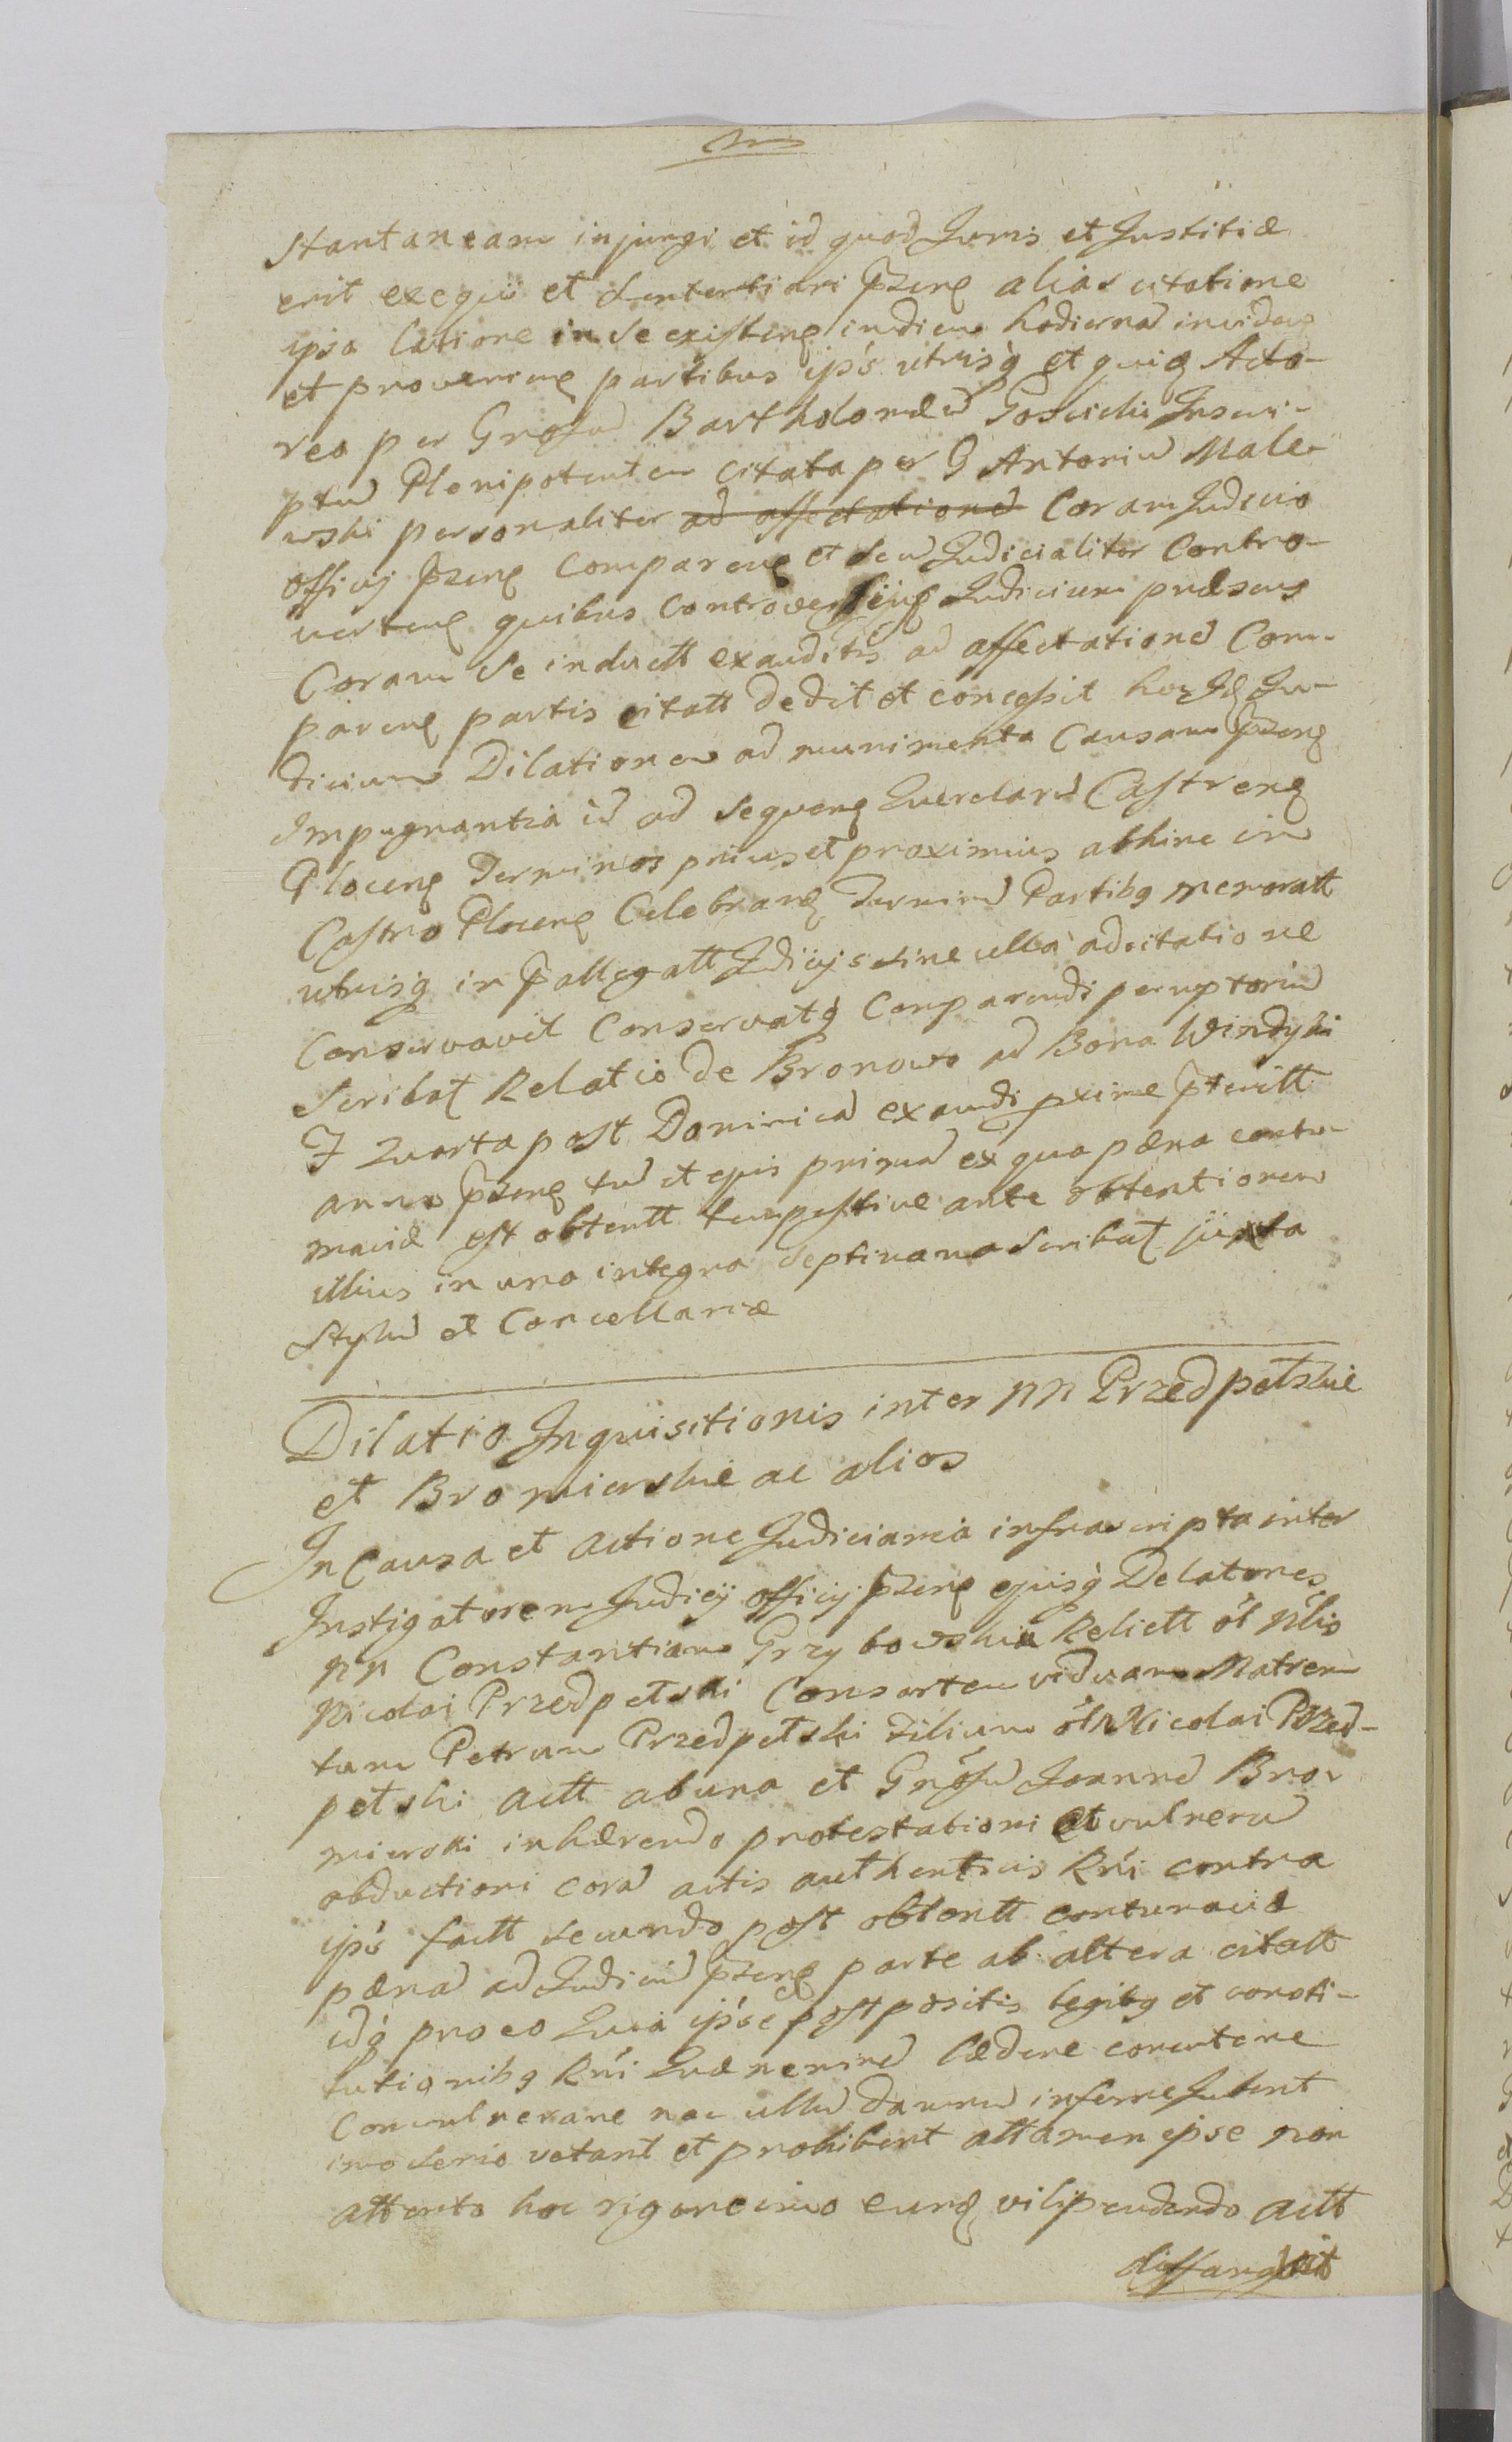 stantaneam injungi et id quod Juris et Justitiæ
erit exequi et sententiari Pzenę alias citatione
ipsa latione in se existenę in diem hodiernã inciden
et provenienę partibus ips utrisq̀ et quię Acto-
rea per Gnosũ Bartholomæũ Goscicki Inscri-
ptũ Plenipotentem citata per G Antoniũ Male-
wski personaliter ad affectationẽ Coram Judicio
officij Pzenę Comparenę et secũ Judicialiter Contro-
vertenę quibus Controversijs Judicium præsens
Coram se inductt exauditis ad affectationẽ Com-
parenę partis citatt dedit et concessit Judi-
dicium Dilationem ad munimenta Causam Pzenę
Impugnantia id ad sequenę Querelarũ Castrenę
Plocenę Terminos prius et proximius abhinc in
Castro Plocenę Celebranę Terminũ Partibg memoratt
utrisq̀ in Pallegatt Judicijs sine ulla adcitatione
Conservavit Conservatq̀ Comparendi peremptoriũ
Scribat Relatio de Bronowo ad Bona Windyki
F Quarta post Dominicã exaudi pxime Pteritt
anno Pzenę tũ et ejus primã ex qua pæna contu-
maciæ est obtentt tempestive ante obtentionem
illius in una integra septimana scribat juxta
Stylũ et Cancellariæ
Dilatio Inquisitionis inter NN Przedpełskie
et Bromierskie ac alios
In Causa et actione Judiciaria infrascripta inter
Instigatorem Judicij officij Pzenę ejusq̀ Delatores
NN Constantiam Grzybowskiã Relictt ol Nlis
Nicolai Przedpełski Consortem viduam Matrem
tum Petrum Przedpełski Filium ol N Nicolai Przed-
pełski Actt ab una et Gnosũ Joannẽ Bro-
mierski inhærendo protestationi et vulnerũ
obductioni corã actis authenticis Rni contra
ips factt secundo post obtentt contumaciæ
pænã ad Judiciũ Pzenę parte ab altera citatt
idq̀ pro eo Quia ipse postpositis legibg et consti-
tutionibg Rni Quæ neminẽ lædere concutere
Convulnerare nec ullũ damnũ inferre Jubent
imo serio vetant et prohibent attamen ipse non
attento hoc rigore imo eunę vilipendendo Actt